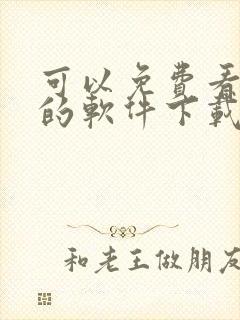 可以免費看
的軟件下載
和老王做朋友